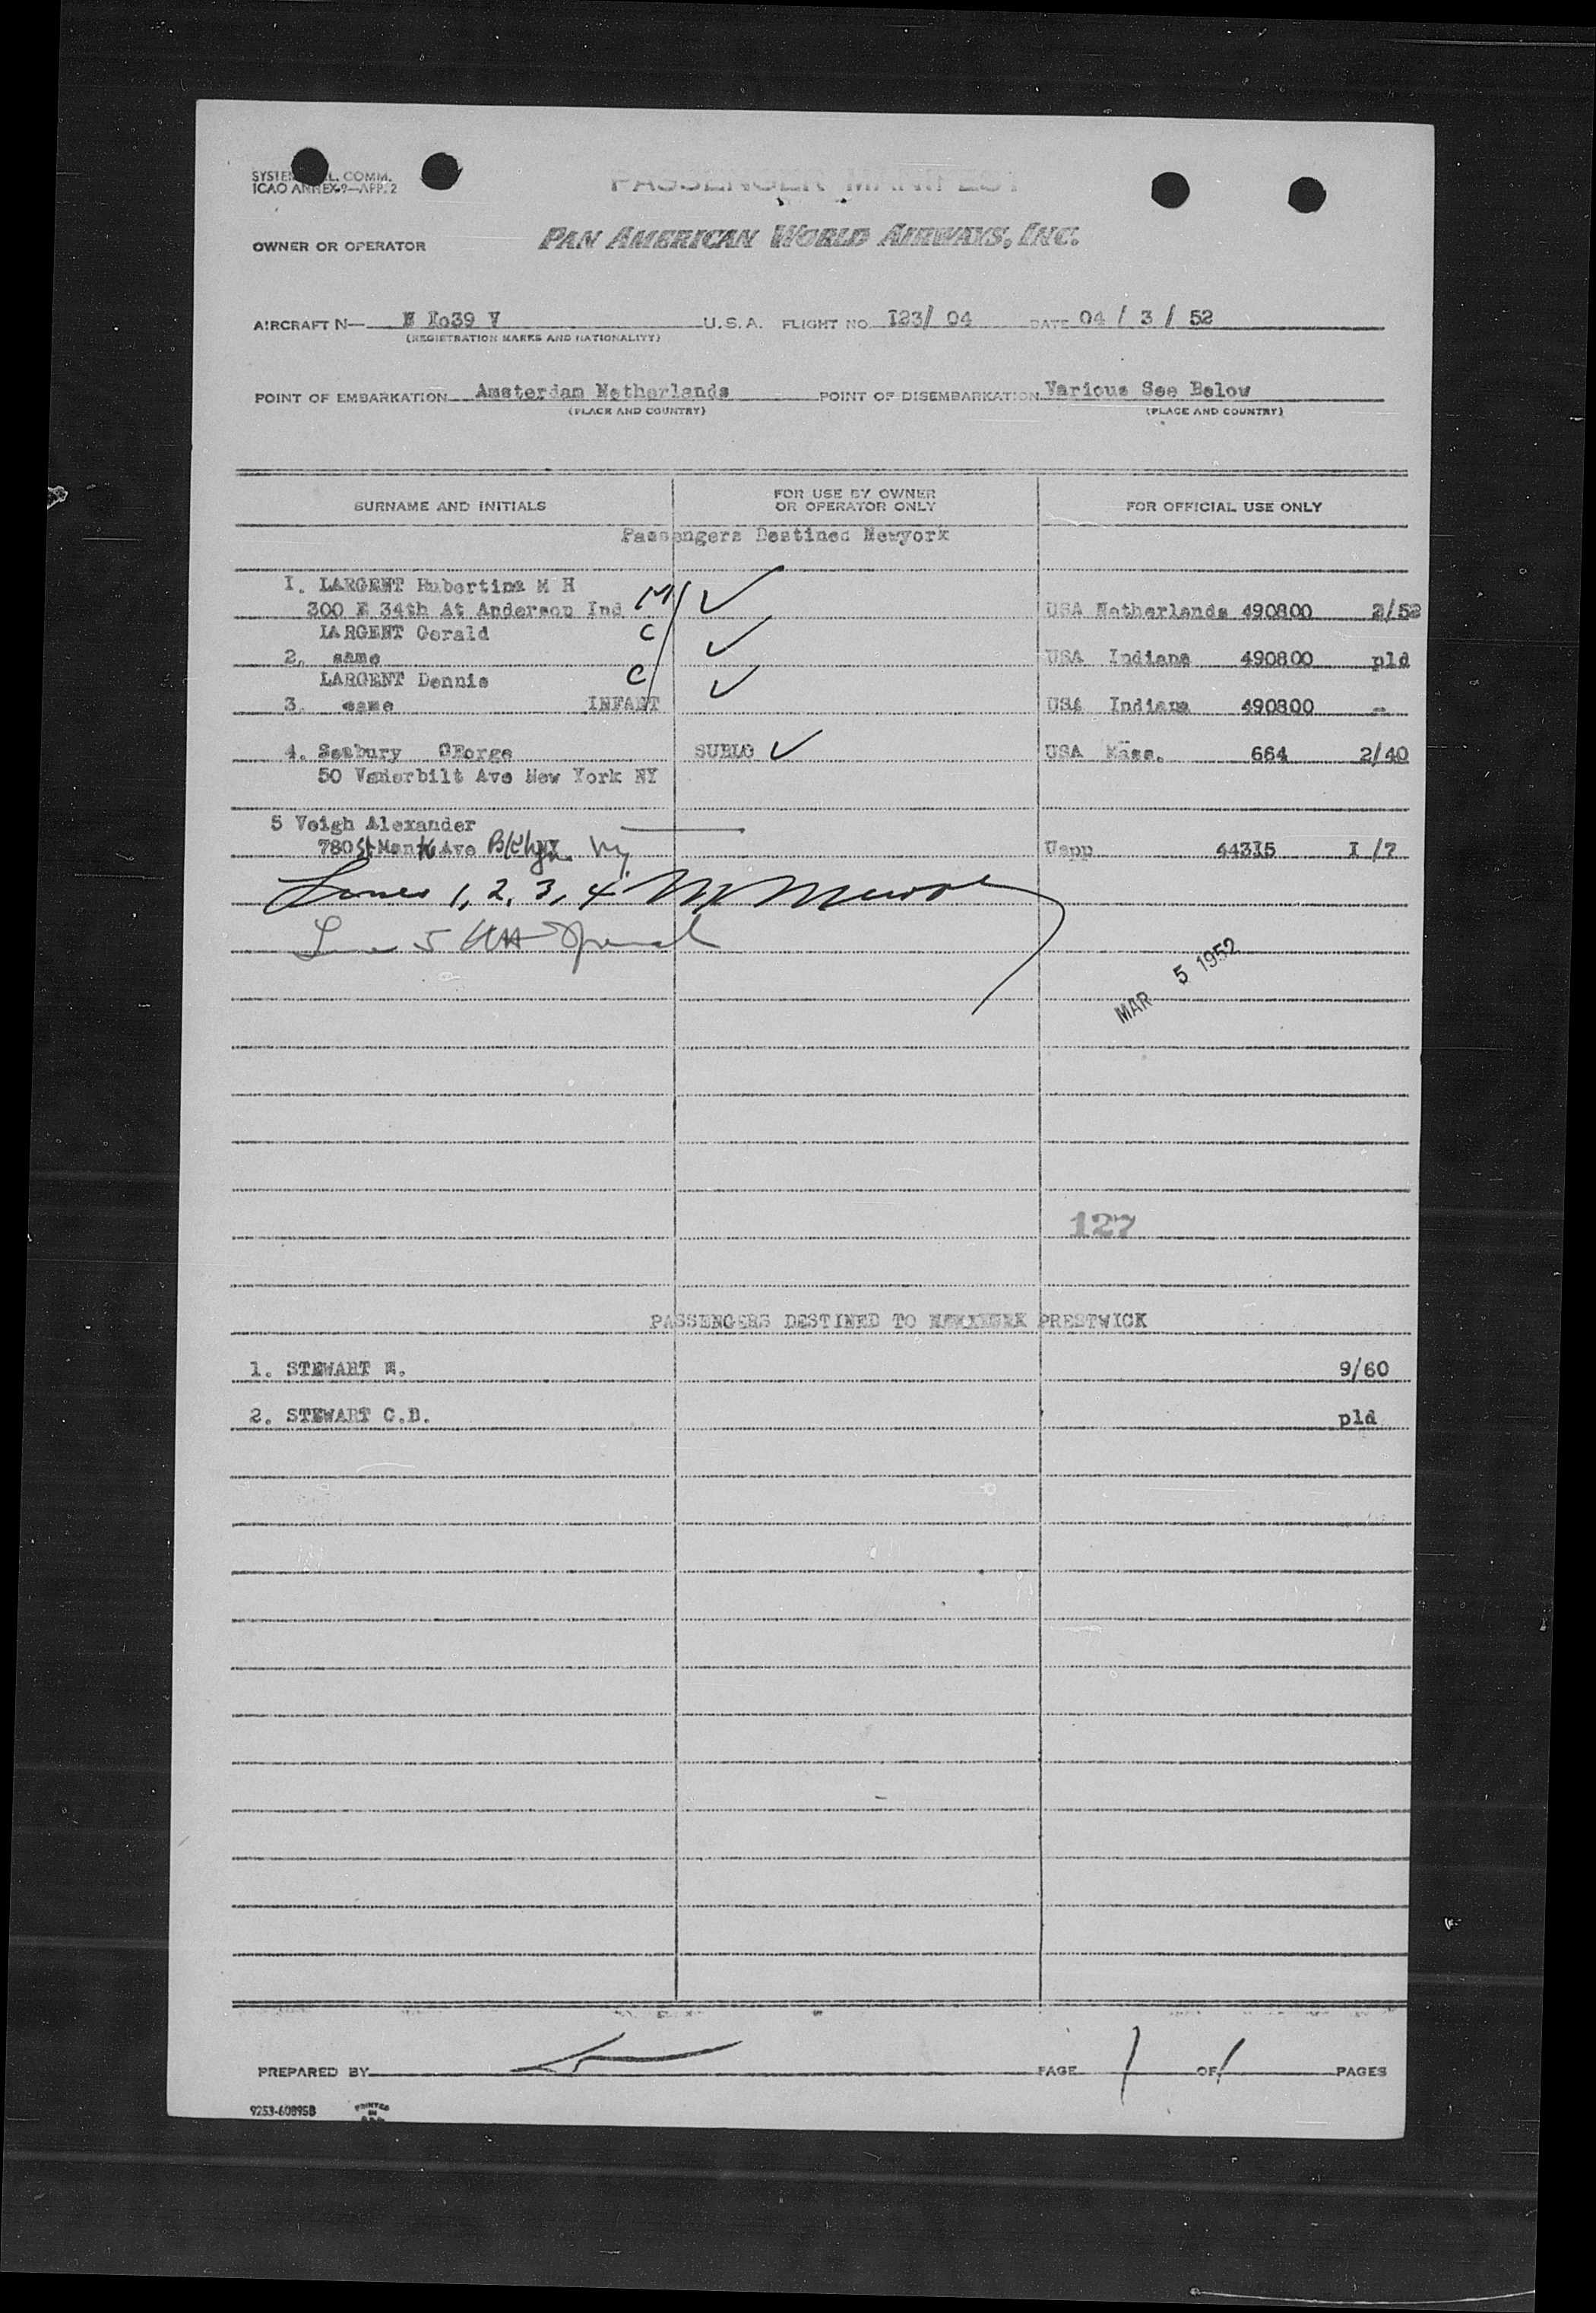 PASSENGER MANIFEST
ICAO ANNEX 9—APP. 2
OWNER OR OPERATOR PAN AMERICAN WORLD AIRWAYS, INC.
AIRCRAFT N— N Io39 V U.S.A. FLIGHT NO. I23/ 04 DATE 04 / 3 / 52
(REGISTRATION MARKS AND NATIONALITY)
POINT OF EMBARKATION Amsterdam Netherlands POINT OF DISEMBARKATION Various See Below
(PLACE AND COUNTRY) (PLACE AND COUNTRY)
SURNAME AND INITIALS FOR USE BY OWNER OR OPERATOR ONLY FOR OFFICIAL USE ONLY
Passengers Destined Newyork
I. LARGENT Hubertina M H
300 E 34th At Anderson Ind M ✓ USA Netherlands 490800 2/52
LARGENT Gerald C ✓
2. same USA Indiana 490800 pld
LARGENT Dennis C ✓
3. same INFANT USA Indiana 490800 -
4. Seabury GEorge SUBLO ✓ USA Mass. 664 2/40
50 Vanderbilt Ave New York NY
5 Veigh Alexander
780 St Mark Ave Bklyn. Ny Uspp 44315 I /7
Lines 1, 2, 3, 4
Line 5
MAR 5 1952
127
PASSENGERS DESTINED TO PRESTWICK
1. STEWART E. 9/60
2. STEWART C.D. pld
PREPARED BY PAGE 1 OF 1 PAGES
9253-60895B PRINTED IN U.S.A.